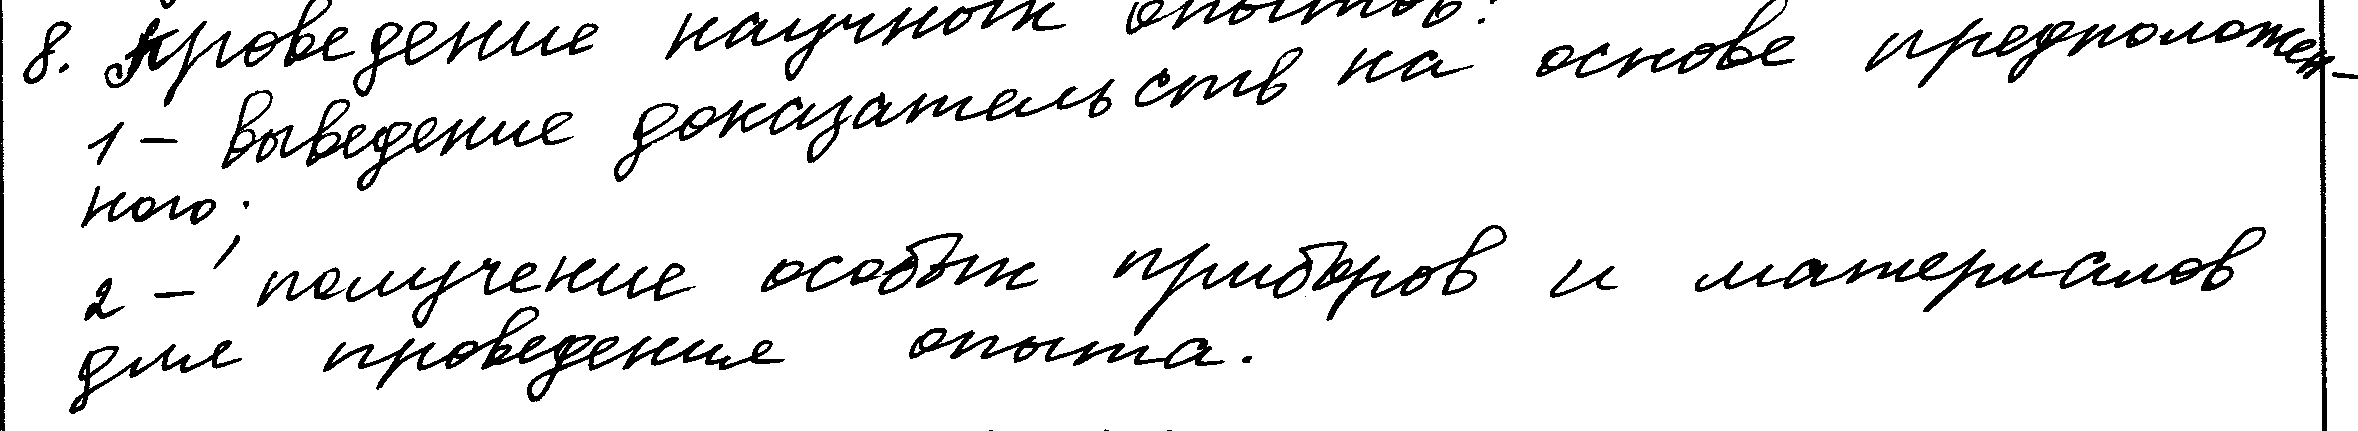 8. Проведение научных опытов:
1 – выведение доказательств на основе предположен-
ного;
2 – получение особых приборов и материалов
для проведения опыта.